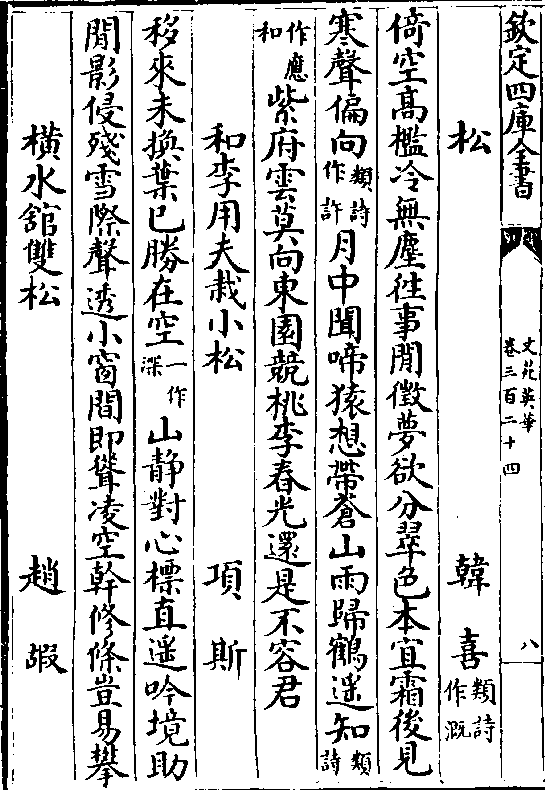 欽定四庫全書
文苑英華
卷三百二十四
八
松 韓喜類詩作溉
倚空高檻冷無塵往事閒徵夢欲分翠色本宜霜後見
寒聲偏向類詩作許月中聞啼猿想帶蒼山雨歸鶴遥知類詩
作應和紫府雲莫向東園競桃李春光還是不容君
和李用夫栽小松 項斯
移來未換葉已勝在空一作深山静對心標直遥吟境助
閒影侵殘雪際聲透小窗間即聳凌空幹修條豈易攀
橫水舘雙松 趙嘏